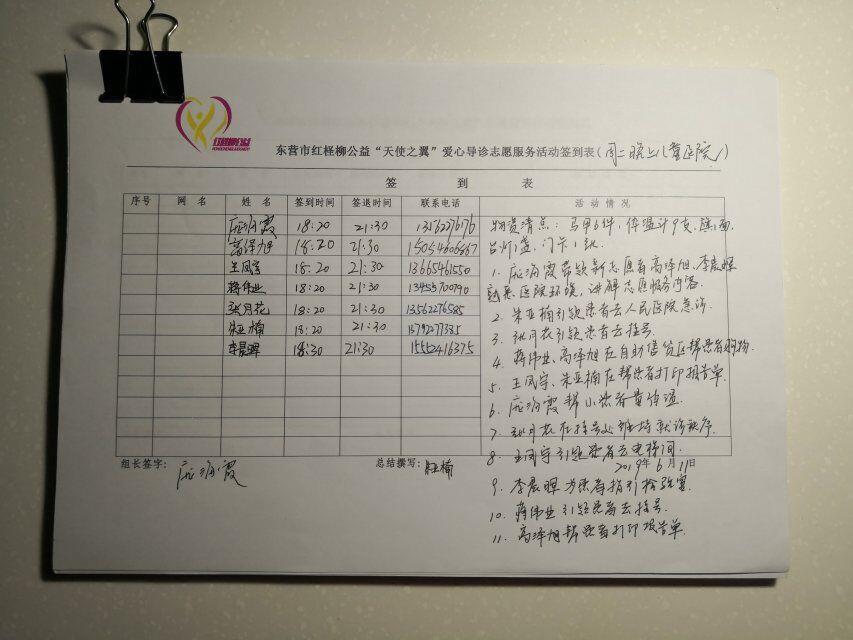 红柽柳公益
东营市红柽柳公益“天使之翼”爱心导诊志愿服务活动签到表(周二晚上儿童医院)
签 到 表
序号 网 名 姓 名 签到时间 签退时间 联系电话 活 动 情 况
霞 18:20 21:30 13562276176
高泽旭 18:20 21:30 15054606867
王凤宇 18:20 21:30 13665461550
蒋伟业 18:20 21:30 13455700790
张月花 18:20 21:30 13562276585
朱亚楠 18:20 21:30 13792277385
李晨晖 18:30 21:30 15552416375
物资清点:马甲6件,体温计9支,旗1面,
台历1盏、门卡1张
1、霞带领新志愿者高泽旭、李晨晖
熟悉医院环境,讲解志愿服务内容
2、朱亚楠引领患者去人民医院急诊
3、张月花引领患者去挂号
4、蒋伟业、高泽旭在自助售货区帮患者购物
5、王凤宇、朱亚楠在帮患者打印报告单
6、霞帮小患者量体温
7、张月花在挂号处维持就诊秩序
8、王凤宇引领患者去电梯间
组长签字: 霞 总结撰写: 朱亚楠 2019年6月11日
9、李晨晖为患者指引检验室
10、蒋伟业引领患者去挂号
11、高泽旭帮患者打印报告单